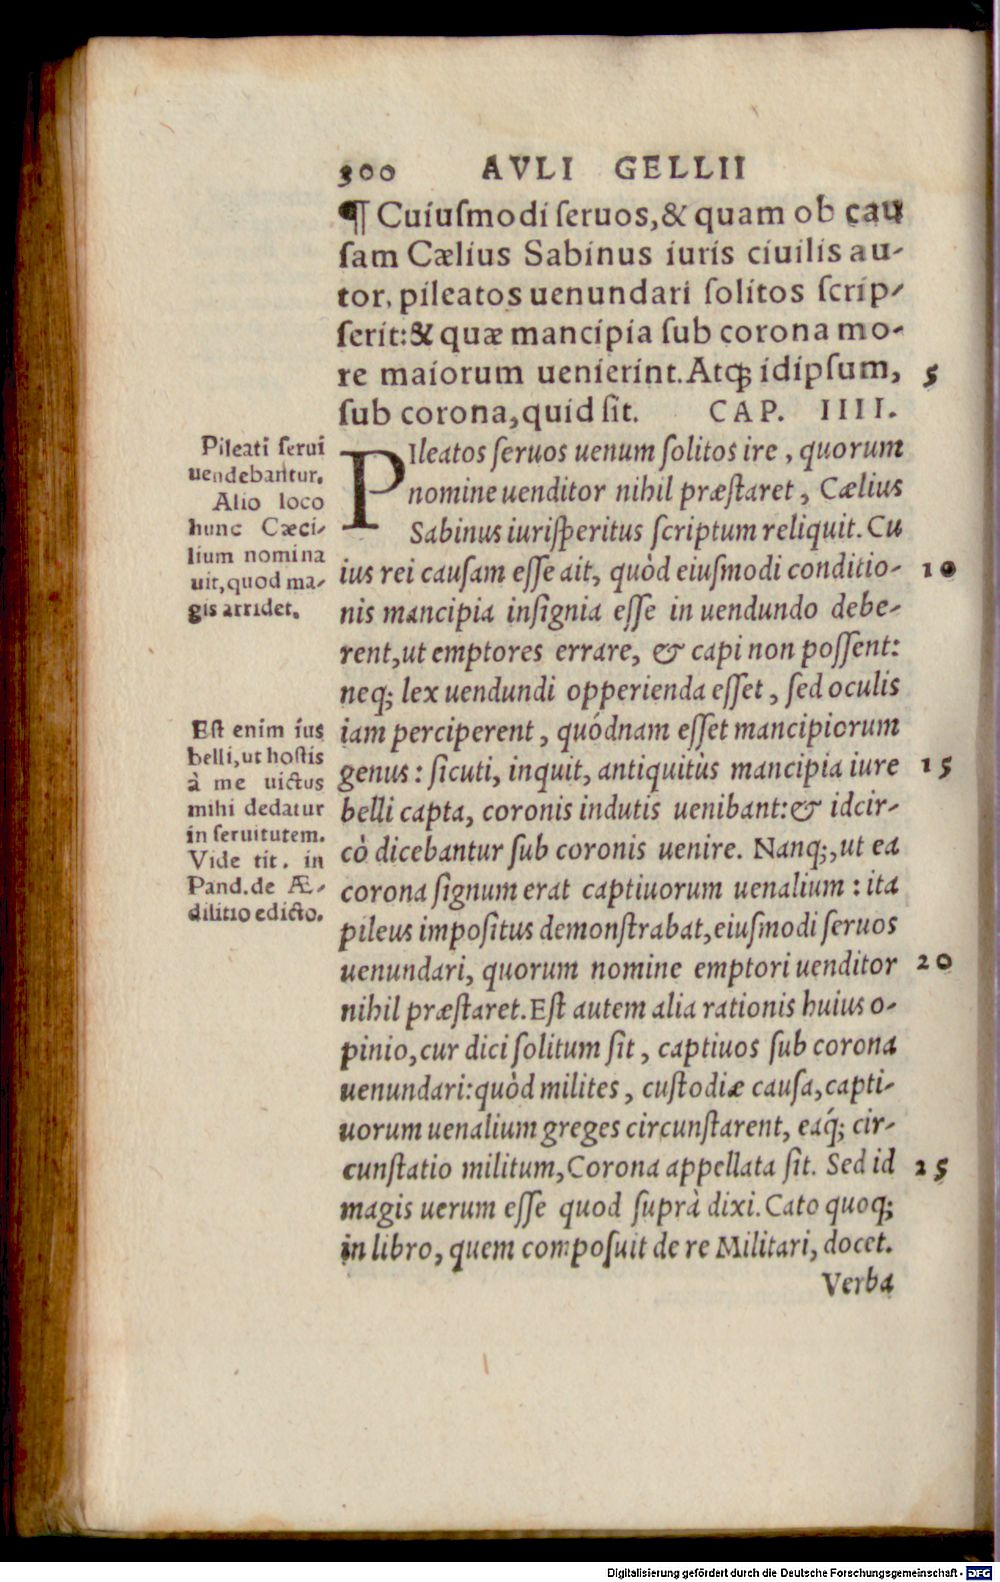 300 AVLI GELLII
¶ Cuiuſmodi ſeruos,& quam ob cau
ſam Cælius Sabinus iuris ciuilis au-
tor, pileatos uenundari ſolitos ſcrip-
ſerit:& quæ mancipia ſub corona mo-
re maiorum uenierint. Atq; idipſum, 5
ſub corona, quid ſit. CAP. IIII.
PIleatos ſeruos uenum ſolitos ire, quorum
nomine uenditor nihil præſtaret, Cælius
Sabinus iuriſperitus ſcriptum reliquit. Cu
ius rei cauſam eſſe ait, quòd eiuſmodi conditio- 10
nis mancipia inſignia eſſe in uendundo debe-
rent, ut emptores errare, & capi non poſſent:
neq; lex uendundi opperienda eſſet, ſed oculis
iam perciperent, quódnam eſſet mancipiorum
genus: ſicuti, inquit, antiquitùs mancipia iure 15
belli capta, coronis indutis uenibant:& idcir-
cò dicebantur ſub coronis uenire. Nanq;, ut ea
corona ſignum erat captiuorum uenalium: ita
pileus impoſitus demonſtrabat, eiuſmodi ſeruos
uenundari, quorum nomine emptori uenditor 20
nihil præſtaret. Eſt autem alia rationis huius o-
pinio, cur dici ſolitum ſit, captiuos ſub corona
uenundari: quòd milites, cuſtodiæ cauſa, capti-
uorum uenalium greges circunſtarent, eaq́; cir-
cunſtatio militum, Corona appellata ſit. Sed id 25
magis uerum eſſe quod ſuprà dixi. Cato quoq;
in libro, quem compoſuit de re Militari, docet.
Verba
Pileati ſerui
uendebantur.
Alio loco
hunc Cæci-
lium nomina
uit, quod ma-
gis arridet.
Eſt enim ius
belli, ut hoſtis
à me uictus
mihi dedatur
in ſeruitutem.
Vide tit. in
Pand. de Æ-
dilitio edicto.
Digitalisierung gefördert durch die Deutsche Forschungsgemeinschaft - DFG